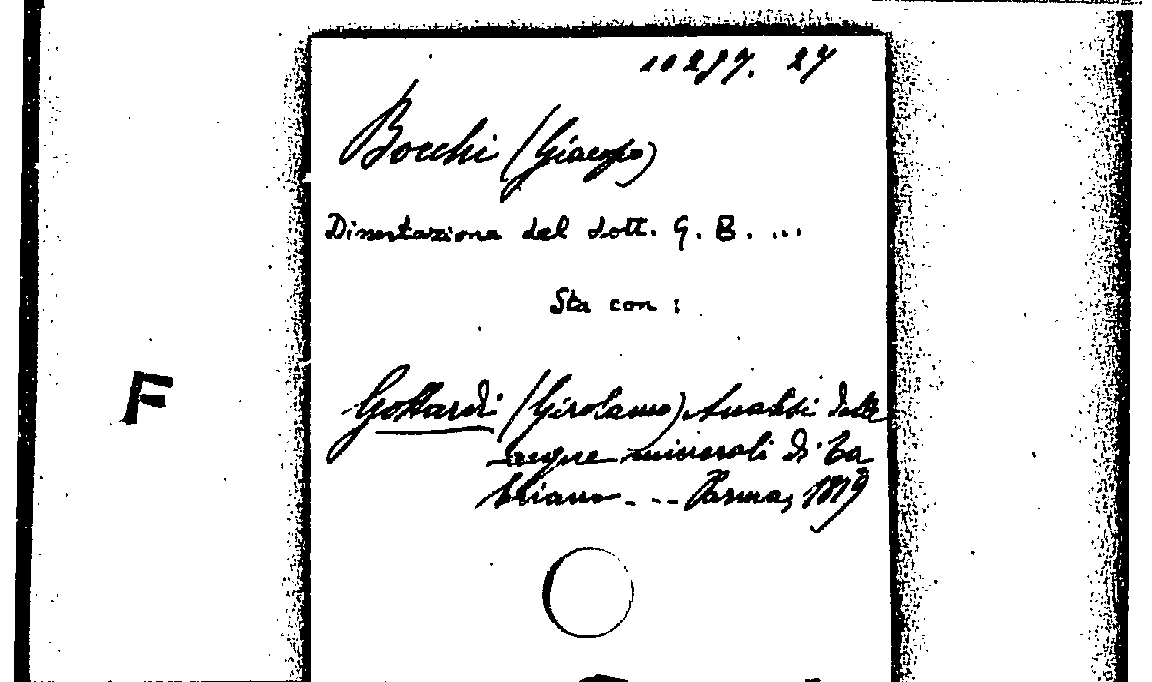 10287. 27
Bocchi (Giacopo)
Dissertazione del dott. G. B. ...
Sta con :
F
Gottardi (Girolamo) Analisi delle
acque minerali di Ta
biano - -- Parma, 1819